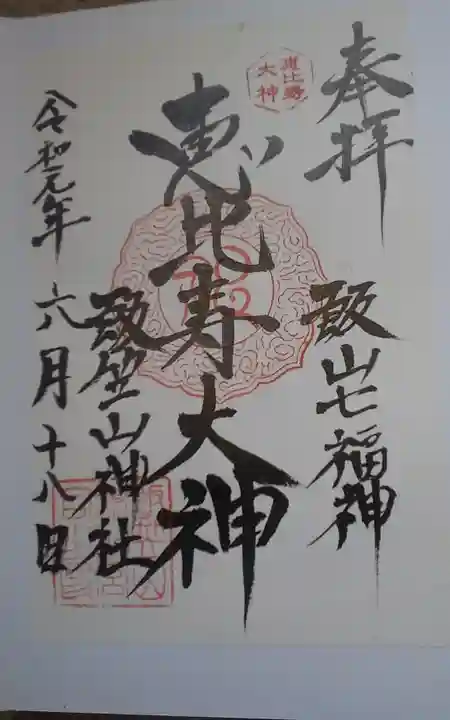 奉拝
飯山七福神
恵比寿
大神
恵比寿大神
飯笠山神社
令和元年
六月十八日